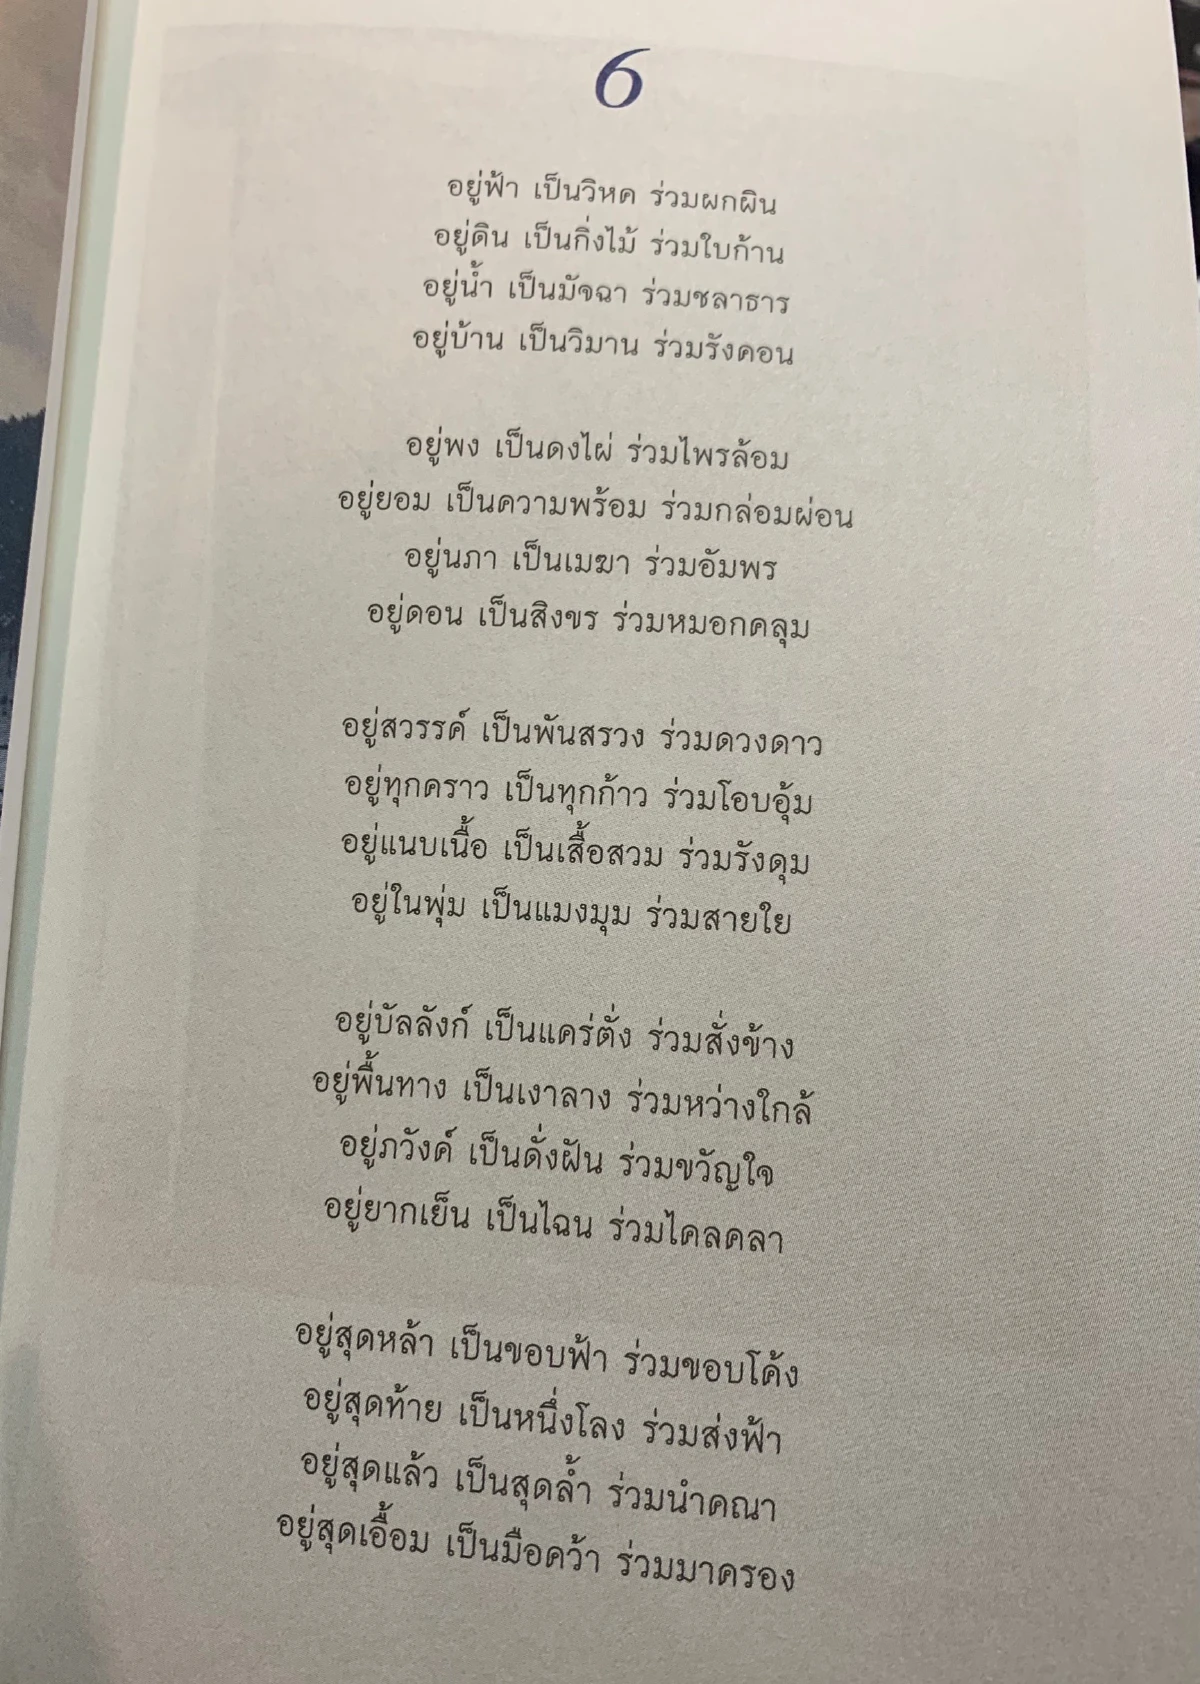 6
อยู่ฟ้า เป็นวิหค ร่วมผกผิน
อยู่ดิน เป็นกิ่งไม้ ร่วมใบก้าน
อยู่น้ำ เป็นมัจฉา ร่วมชลาธาร
อยู่บ้าน เป็นวิมาน ร่วมรังคอน
อยู่พง เป็นดงไผ่ ร่วมไพรล้อม
อยู่ยอม เป็นความพร้อม ร่วมกล่อมผ่อน
อยู่นภา เป็นเมฆา ร่วมอัมพร
อยู่ดอน เป็นสิงขร ร่วมหมอกคลุม
อยู่สวรรค์ เป็นพันสรวง ร่วมดวงดาว
อยู่ทุกคราว เป็นทุกก้าว ร่วมโอบอุ้ม
อยู่แนบเนื้อ เป็นเสื้อสวม ร่วมรังดุม
อยู่ในพุ่ม เป็นแมงมุม ร่วมสายใย
อยู่บัลลังก์ เป็นแคร่ตั่ง ร่วมสั่งข้าง
อยู่พื้นทาง เป็นเงาลาง ร่วมหว่างใกล้
อยู่ภวังค์ เป็นดั่งฝัน ร่วมขวัญใจ
อยู่ยากเย็น เป็นไฉน ร่วมไคลคลา
อยู่สุดหล้า เป็นขอบฟ้า ร่วมขอบโค้ง
อยู่สุดท้าย เป็นหนึ่งโลง ร่วมส่งฟ้า
อยู่สุดแล้ว เป็นสุดล้ำ ร่วมนำคณา
อยู่สุดเอื้อม เป็นมือคว้า ร่วมมาครอง